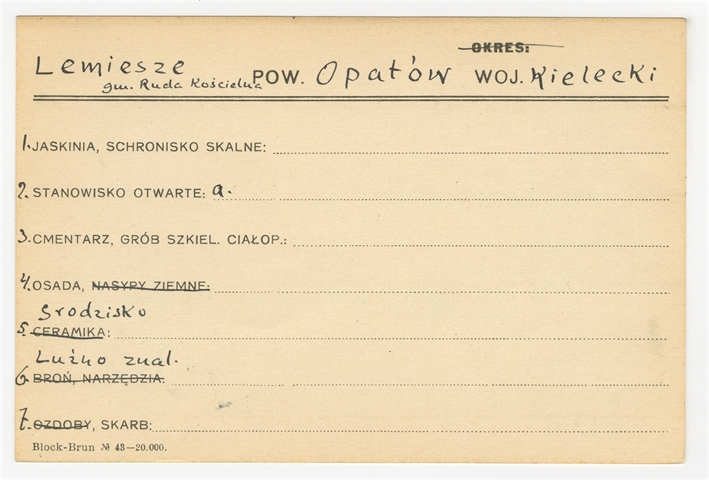 OKRES:
Lemiesze POW. Opatów WOJ. Kielecki
gm. Ruda Kościelna
1. JASKINIA, SCHRONISKO SKALNE:
2. STANOWISKO OTWARTE: a.
3. CMENTARZ, GRÓB SZKIEL. CIAŁOP.:
4. OSADA, NASYPY ZIEMNE:
Grodzisko
5. CERAMIKA:
Luźno znal.
6. BROŃ, NARZĘDZIA:
7. OZDOBY, SKARB:
Block-Brun № 43—20.000.